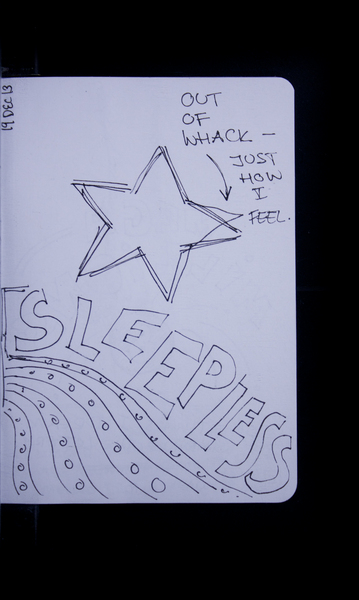 19 DEC 13
OUT
OF
WHACK —
JUST
HOW
I
FEEL.
SLEEPLESS